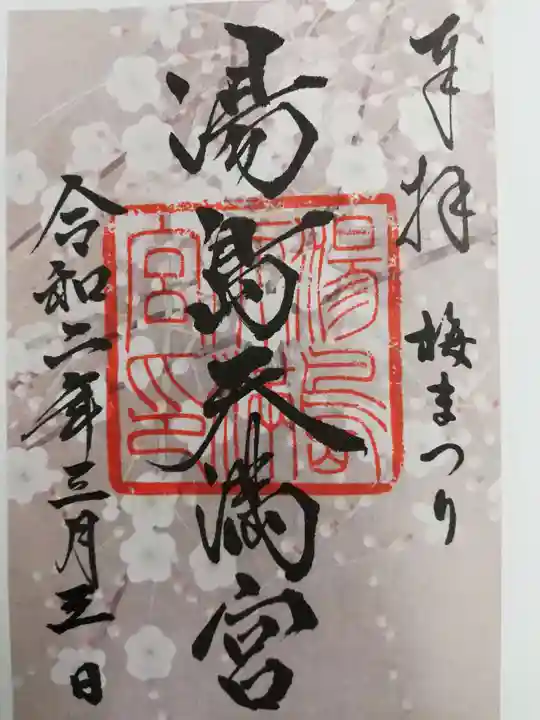 奉拝　梅まつり
湯島天満宮
令和二年三月五日
湯島
宮印